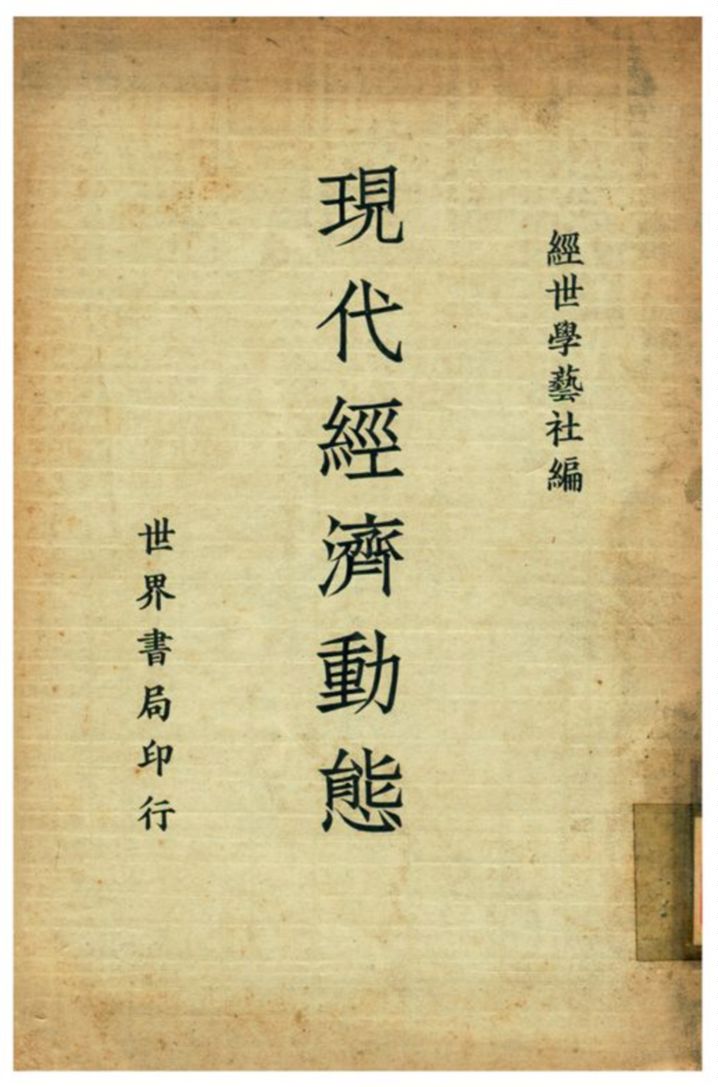 經世學藝社編
現代經濟動態
世界書局印行